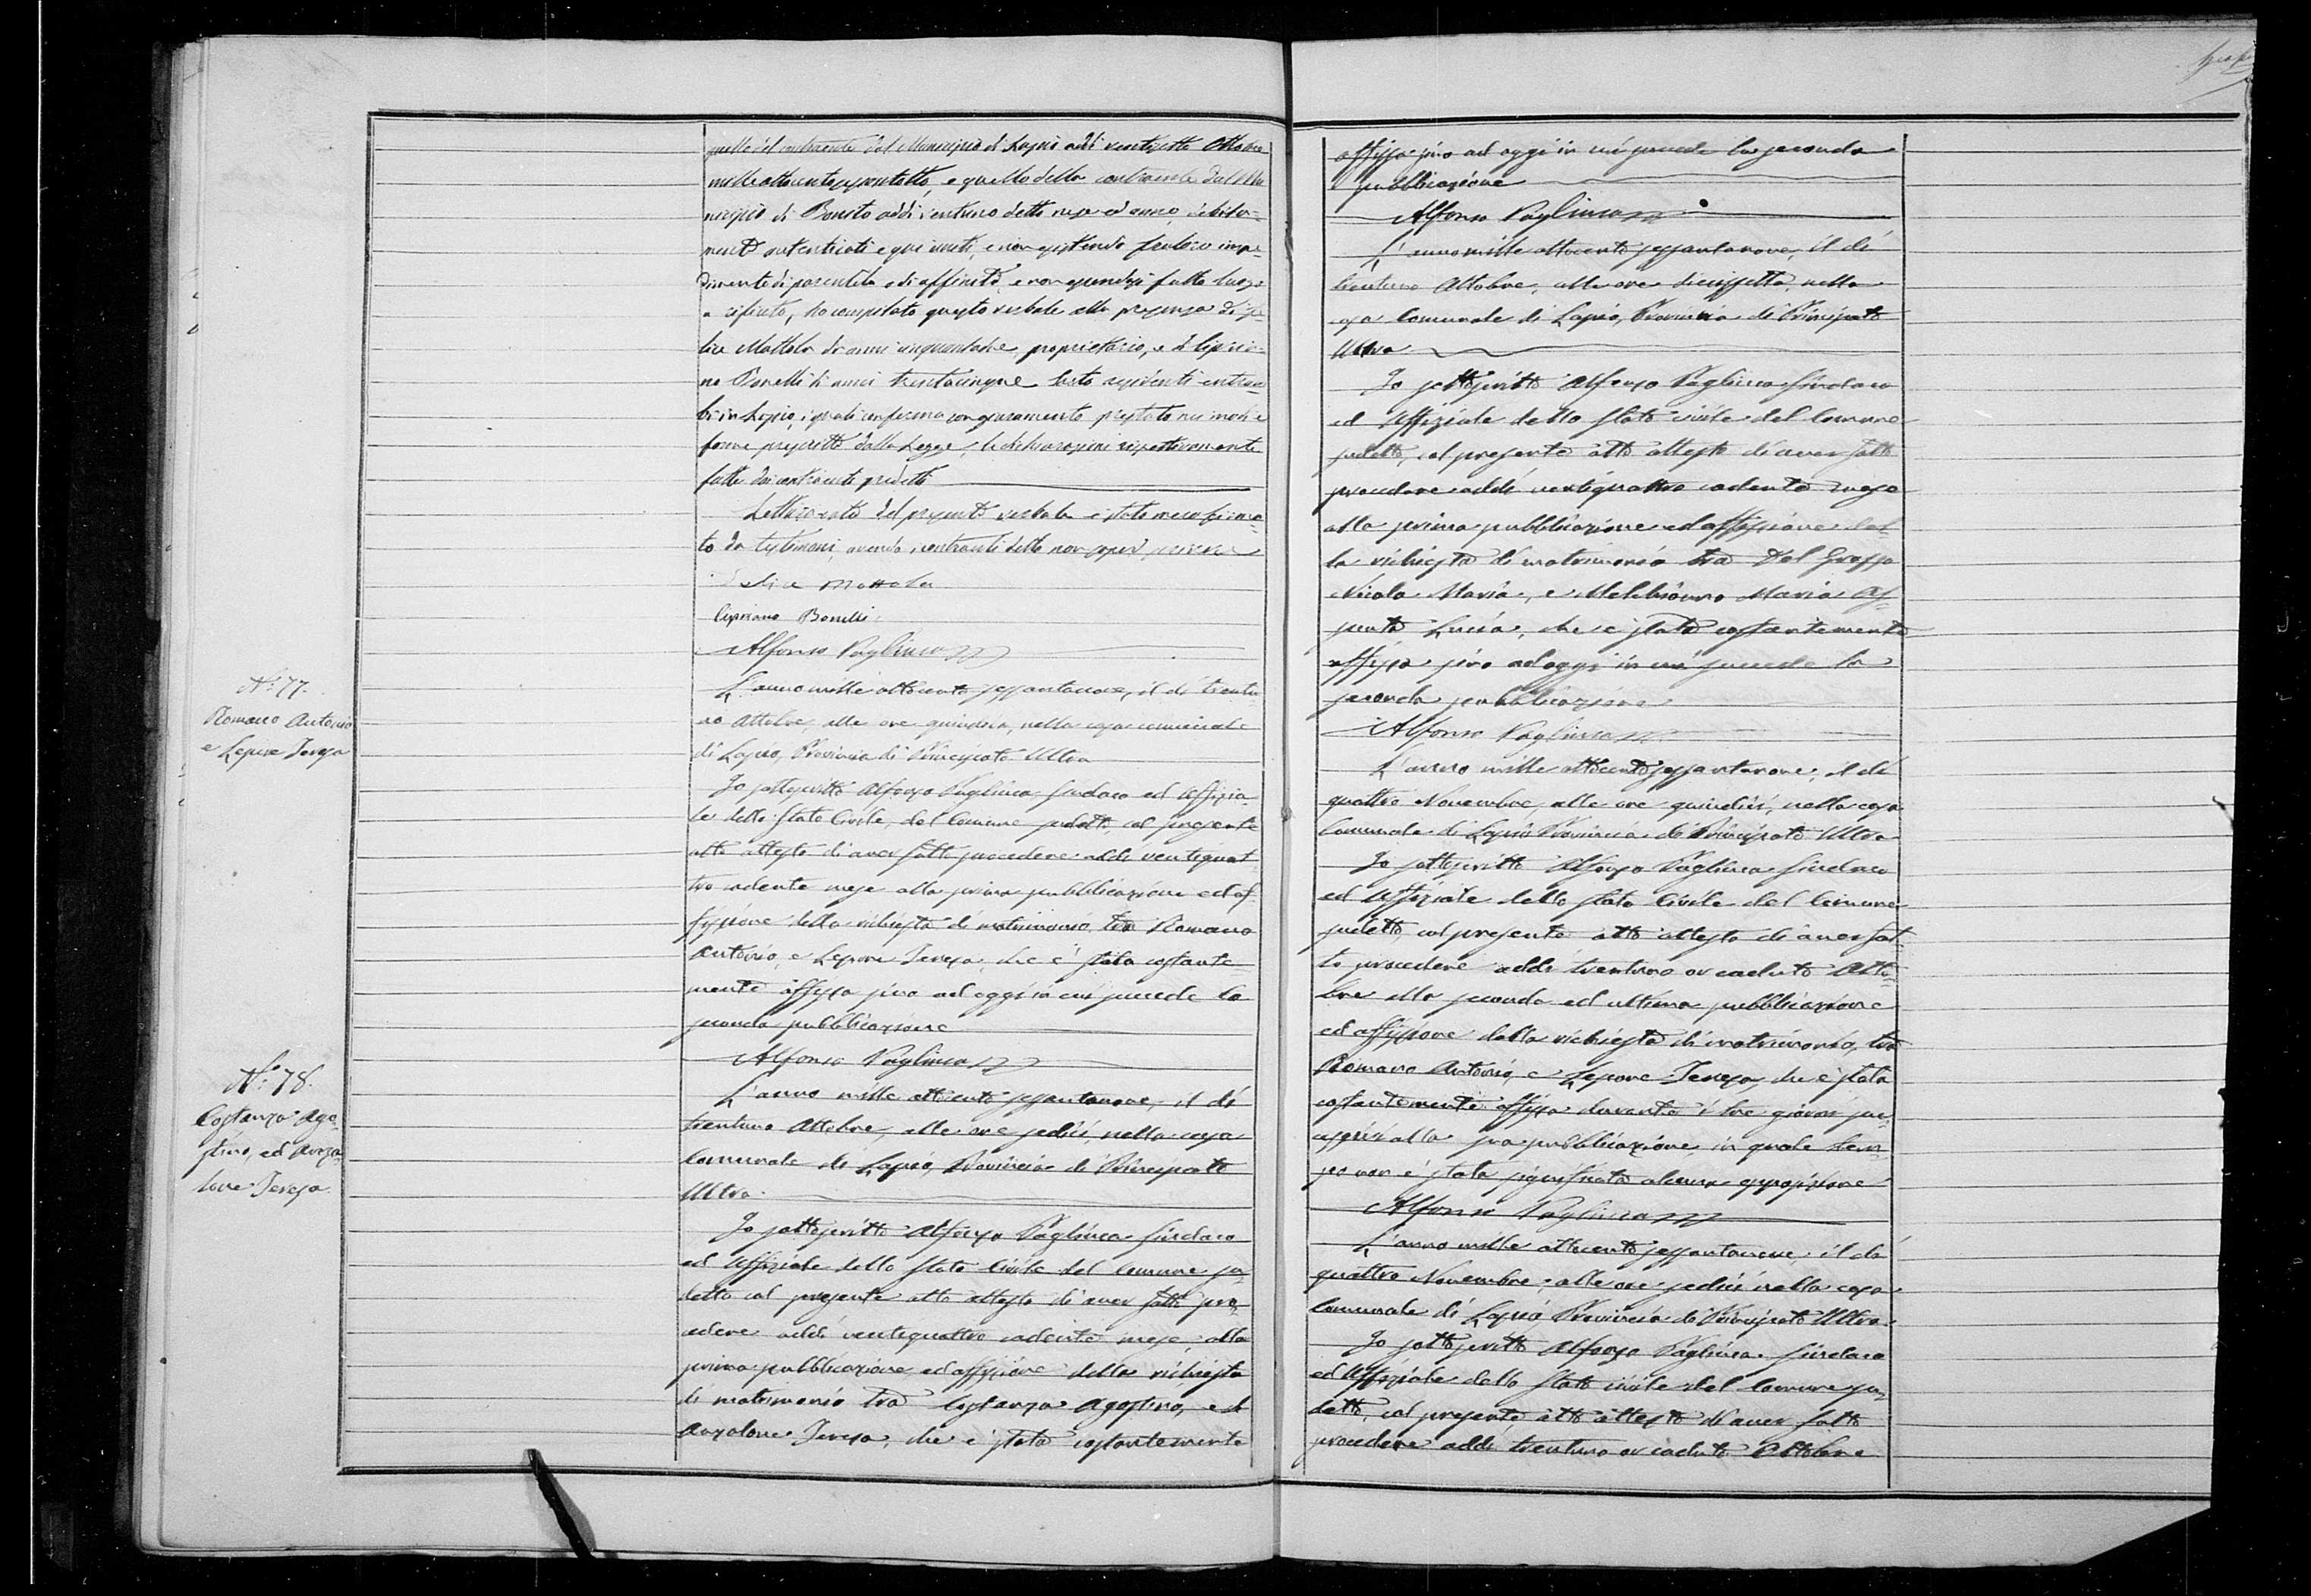 quello del contraente dal Municipio di Lapio addì ventisette Ottobre
milleottocentosessantotto, e quello della contraente dal Mu
nicipio di Bonito addì ventuno detto mese ed anno, debita=
mente autenticati e qui uniti, e non esistendo fra loro impe=
dimento di parentela o di affinità, e non essendosi fatto luogo
a rifiuto, ho compilato questo verbale alla presenza di Fe=
lice Mattola di anni cinquantatre proprietario, e di Cipria=
no Bonelli di anni trentacinque sarto residenti entram
bi in Lapio, i quali conferma con giuramento prestato nei modi e
forme prescritte dalla Legge, le dichiarazioni rispettivamente
fatte dai contraenti predetti
Letto il presente verbale è stato meco firma=
to da testimoni, avendo i contraenti detto non saper scrivere
Felice Mattola
Cipriano Bonelli
Alfonso Pagliuca
N.° 77.
Romano Antonio
e Lepore Teresa
L'anno mille ottocento sessantanove, il dì trentu
no Ottobre, alle ore quindici, nella casa comunale
di Lapio, Provincia di Principato Ultra
Io sottoscritto Alfonso Pagliuca Sindaco ed Uffizia=
le dello Stato Civile del Comune sudetto, col presente
atto attesto di aver fatto procedere addì ventiquat
tro cadente mese alla prima pubblicazione ed af=
fissione della richiesta di matrimonio, tra Romano
Antonio, e Lepore Teresa, che è stata costante=
mente affissa sino ad oggi in cui succede la
seconda pubblicazione
Alfonso Pagliuca
N.° 78.
Costanzo Ago=
stino, ed Anza
lone Teresa
L'anno mille ottocento sessantanove, il dì
trentuno Ottobre, alle ore sedici, nella casa
Comunale di Lapio, Provincia di Principato
Ultra.
Io sottoscritto Alfonso Pagliuca Sindaco
ed Uffiziale dello Stato Civile del Comune su=
detto col presente atto attesto di aver fatto pro=
cedere addì ventiquattro cadente mese, alla
prima pubblicazione, ed affissione della richiesta
di matrimonio tra Costanzo Agostino, ed
Anzalone Teresa, che è stata costantemente
affissa sino ad oggi in cui succede la seconda
pubblicazione
Alfonso Pagliuca
L'anno mille ottocento sessantanove, il dì
trentuno Ottobre, alle ore diciassette, nella
casa Comunale di Lapio, Provincia di Principato
Ultra
Io sottoscritto Alfonso Pagliuca Sindaco
ed Uffiziale dello Stato Civile del Comune
sudetto, col presente atto attesto di aver fatto
procedere addì ventiquattro cadente mese
alla prima pubblicazione ed affissione del=
la richiesta di matrimonio tra Del Grosso
Nicola Maria, e Melchionno Maria As=
sunta Lucia, che è stata costantemente
affissa sino ad oggi in cui succede la
seconda pubblicazione
Alfonso Pagliuca
L'anno mille ottocento sessantanove, il dì
quattro Novembre, alle ore quindici, nella casa
Comunale di Lapio Provincia di Principato Ultra
Io sottoscritto Alfonso Pagliuca Sindaco
ed Uffiziale dello Stato Civile del Comune
sudetto col presente atto attesto di aver fat
to procedere addì trentuno or caduto Otto=
bre alla seconda ed ultima pubblicazione
ed affissione della richiesta di matrimonio, tra
Romano Antonio, e Lepore Teresa, che è stata
costantemente affissa durante i tre giorni suc=
cessivi alla sua pubblicazione, in quale tem=
po non è stata significata alcuna opposizione
Alfonso Pagliuca
L'anno mille ottocento sessantanove, il dì
quattro Novembre, alle ore sedici nella casa
Comunale di Lapio Provincia di Principato Ultra
Io sottoscritto Alfonso Pagliuca Sindaco
ed Uffiziale dello Stato Civile del Comune su=
detto, col presente atto attesto di aver fatto
procedere addì trentuno or caduto Ottobre